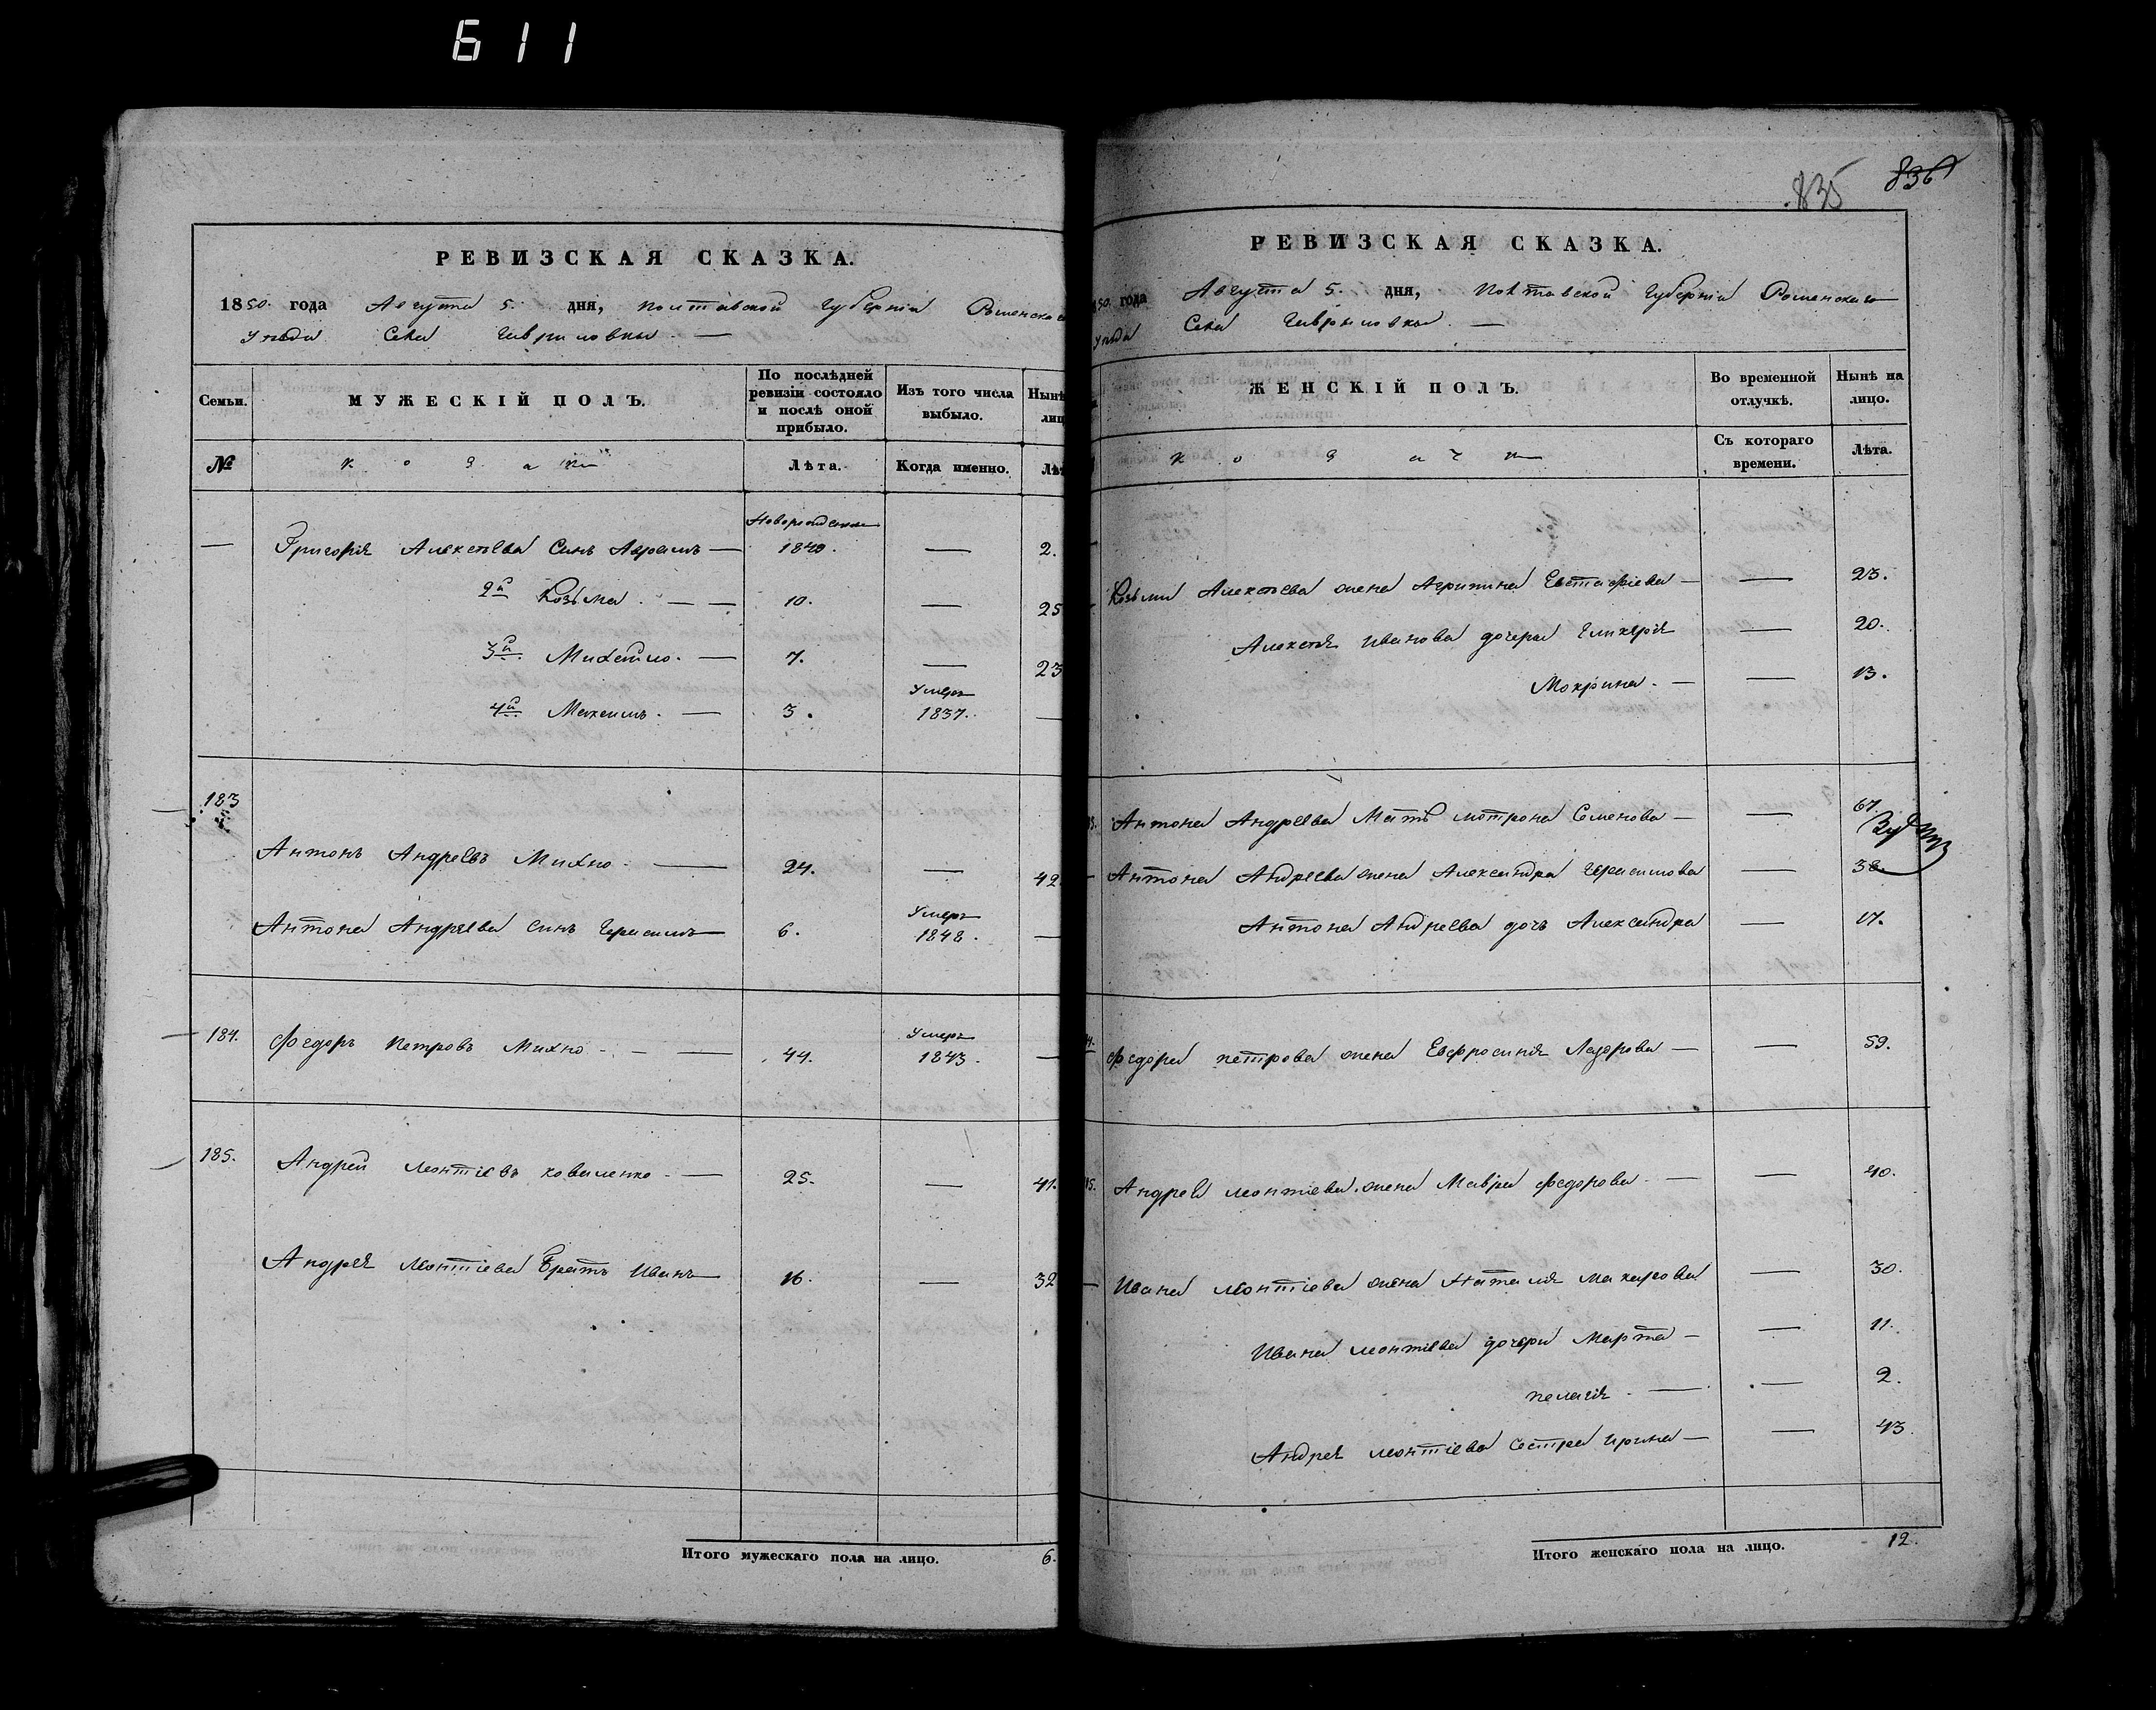 611
РЕВИЗСКАЯ СКАЗКА.
1850. года Августа 5. дня, Полтавской Губерніи Роменскаго
Уезда Села Гавриловки. —
Семьи. МУЖЕСКІЙ ПОЛЪ. По послѣдней ревизіи состояло и послѣ оной прибыло. Изъ того числа выбыло. Нынѣ лиц
№ козаки Лѣта. Когда именно. Лѣт
Новорожденный
— Григорія Алексѣева Сынъ Аврамъ — 1849. — 2.
2й Козьма. — — 10. — 25
3й Михайло. — 7. — 23
4й Максимъ. — 3. Умеръ 1837. —
183
Антонъ Андреевъ Михно. — 24. — 42
Антона Андреева сынъ Герасимъ — 6. Умеръ 1848. —
184. Федоръ Петровъ Михно - - — 44. Умеръ 1843. —
185. Андрей Леонтіевъ Коваленко. — 25. — 41.
Андрея Леонтіева Братъ Иванъ — 16. — 32
Итого мужескаго пола на лицо. 6.
835 836
РЕВИЗСКАЯ СКАЗКА.
850. года Августа 5. дня, Полтавской Губерніи Роменскаго
Уезда Села Гавриловки. —
ЖЕНСКІЙ ПОЛЪ. Во временной отлучкѣ. Нынѣ на лицо.
козачки Съ котораго времени. Лѣта.
Козьми Алексѣева жена Агрипина Евстафіева — — 23.
Алексѣя Иванова дочери Гликерія — 20.
Мокрина. — — 13.
Антона Андреева Мать Мотрона Семенова — — 67.
— Антона Андреева жена Александра Герасимова — 38.
Антона Андреева дочь Александра — 17.
Федора Петрова жена Евфросинія Лазарова — — 59.
Андрея Леонтіева жена Мавра Федорова. — — 40.
— Ивана Леонтіева жена Наталія Макарова — 30.
Ивана Леонтіева дочери Марта — — 11.
Пелагія. — — 2.
Андрея Леонтіева Сестра Ирина — — 43.
Итого женскаго пола на лицо. 12.